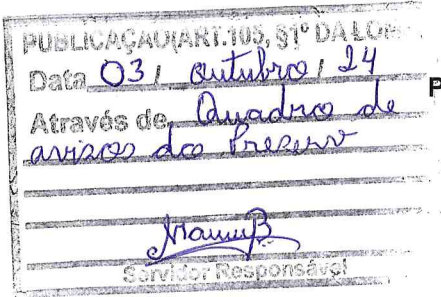 PUBLICAÇÃO(ART.105, §1º DA LOM
Data 03 / outubro / 24
Através de Quadro de
avisos do Preserv
Servidor Responsável
P